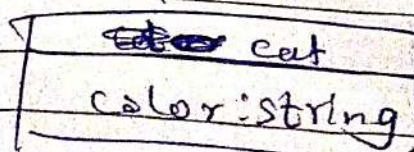 cat
color:string